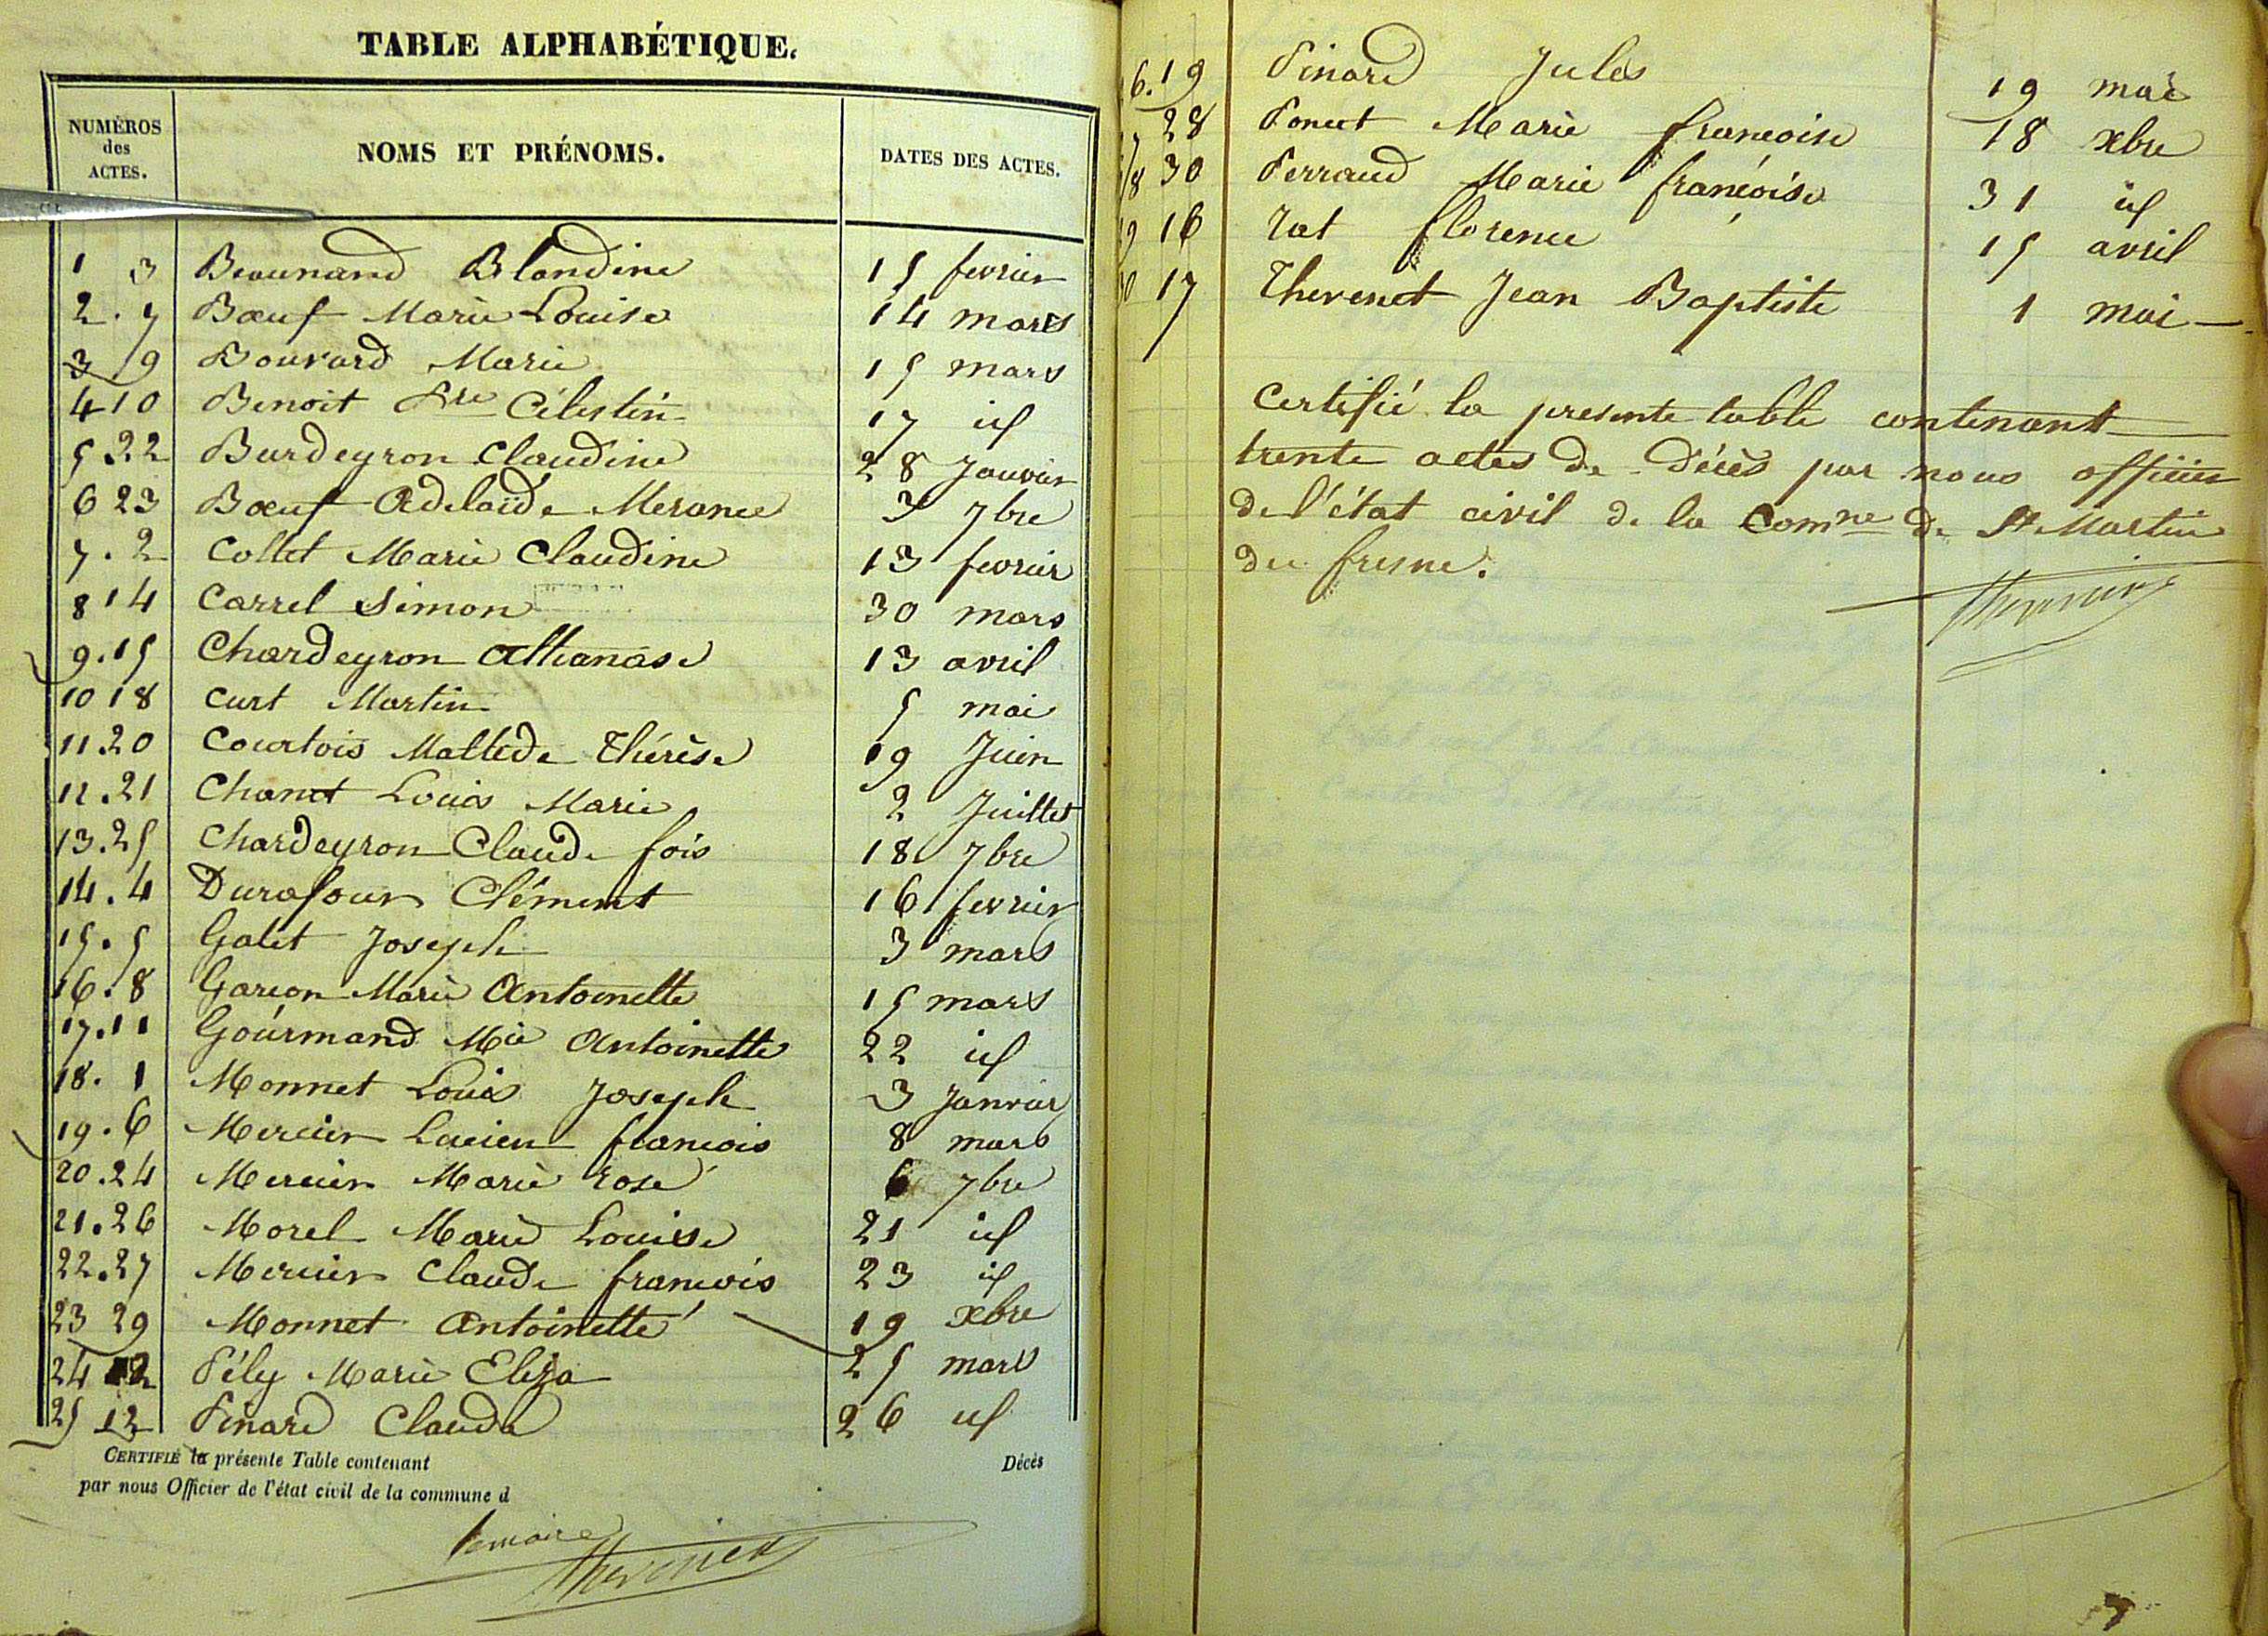 TABLE ALPHABÉTIQUE.
NUMÉROS des ACTES. NOMS ET PRÉNOMS. DATES DES ACTES.
1 3 Beaunand Blandine 15 fevrier
2. 7 Bœuf Marie Louise 14 mars
3 9 Bouvard Marie 15 mars
4 10 Benoit Pre Célestin 17 id
5 22 Burdeyron Claudine 28 Janvier
6 23 Bœuf Adelaïde Merance 3 7bre
7. 2 Collet Marie Claudine 13 fevrier
8 14 Carrel Simon 30 mars
9. 15 Chardeyron Athanase 13 avril
10 18 Curt Martin 5 mai
11. 20 Courtois Matilde Thérèse 19 Juin
12. 21 Chanet Louis Marie 2 Juillet
13. 25 Chardeyron Claude fois 18 7bre
14. 4 Durafour Clément 16 fevrier
15. 5 Galet Joseph 3 mars
16. 8 Garcon Marie Antoinette 15 mars
17. 11 Gourmand Mie Antoinette 22 id
18. 1 Monnet Louis Joseph 3 Janvier
19. 6 Mercier Lucien francois 8 mars
20. 24 Mercier Marie Rose 6 7bre
21. 26 Morel Marie Louise 21 id
22. 27 Mercier Claude francois 23 id
23 29 Monnet Antoinette 19 xbre
24 12 Pély Marie Eliza 25 mars
25 13 Pinard Claude 26 id
CERTIFIÉ la présente Table contenant Décès
par nous Officier de l'état civil de la commune d
le maire
6. 19 Pinard Jules 19 mai
7 28 Poncet Marie francoise 18 xbre
8 30 Perraud Marie francoise 31 id
9 16 Rat florence 15 avril
30 17 Thevenet Jean Baptiste 1 mai
Certifié la presente table contenant
trente actes de Décès par nous officier
de l'état civil de la Comne de St Martin
du fresne.